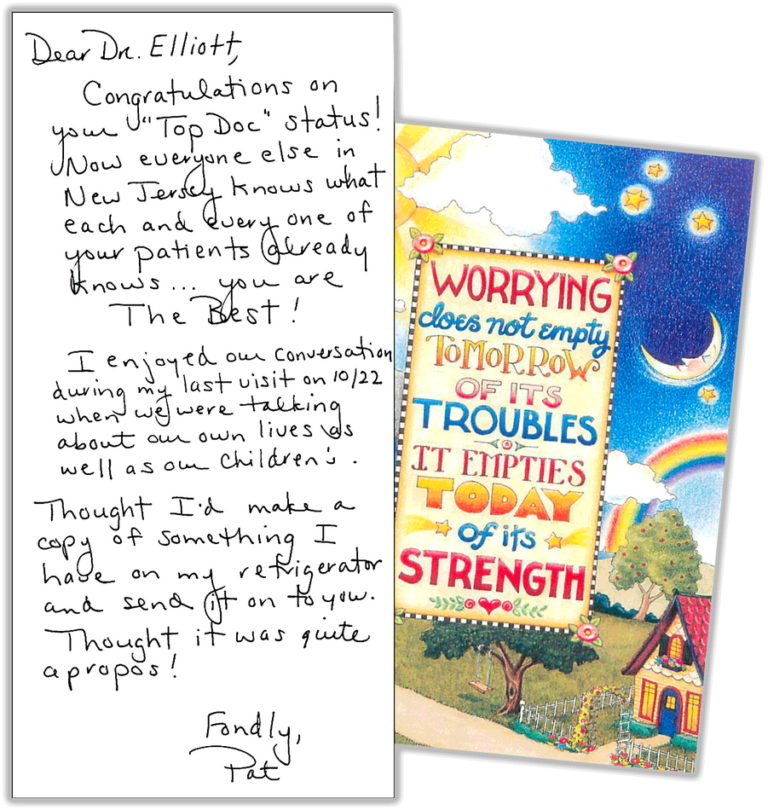 Dear Dr. Elliott,
Congratulations on
your "Top Doc" status!
Now everyone else in
New Jersey knows what
each and every one of
your patients already
knows... you are
The Best!
I enjoyed our conversation
during my last visit on 10/22
when we were talking
about our own lives as
well as our children's.
Thought I'd make a
copy of something I
have on my refrigerator
and send it on to you.
Thought it was quite
apropos!
Fondly,
Pat
WORRYING
does not empty
TOMORROW
OF ITS
TROUBLES
IT EMPTIES
TODAY
of its
STRENGTH